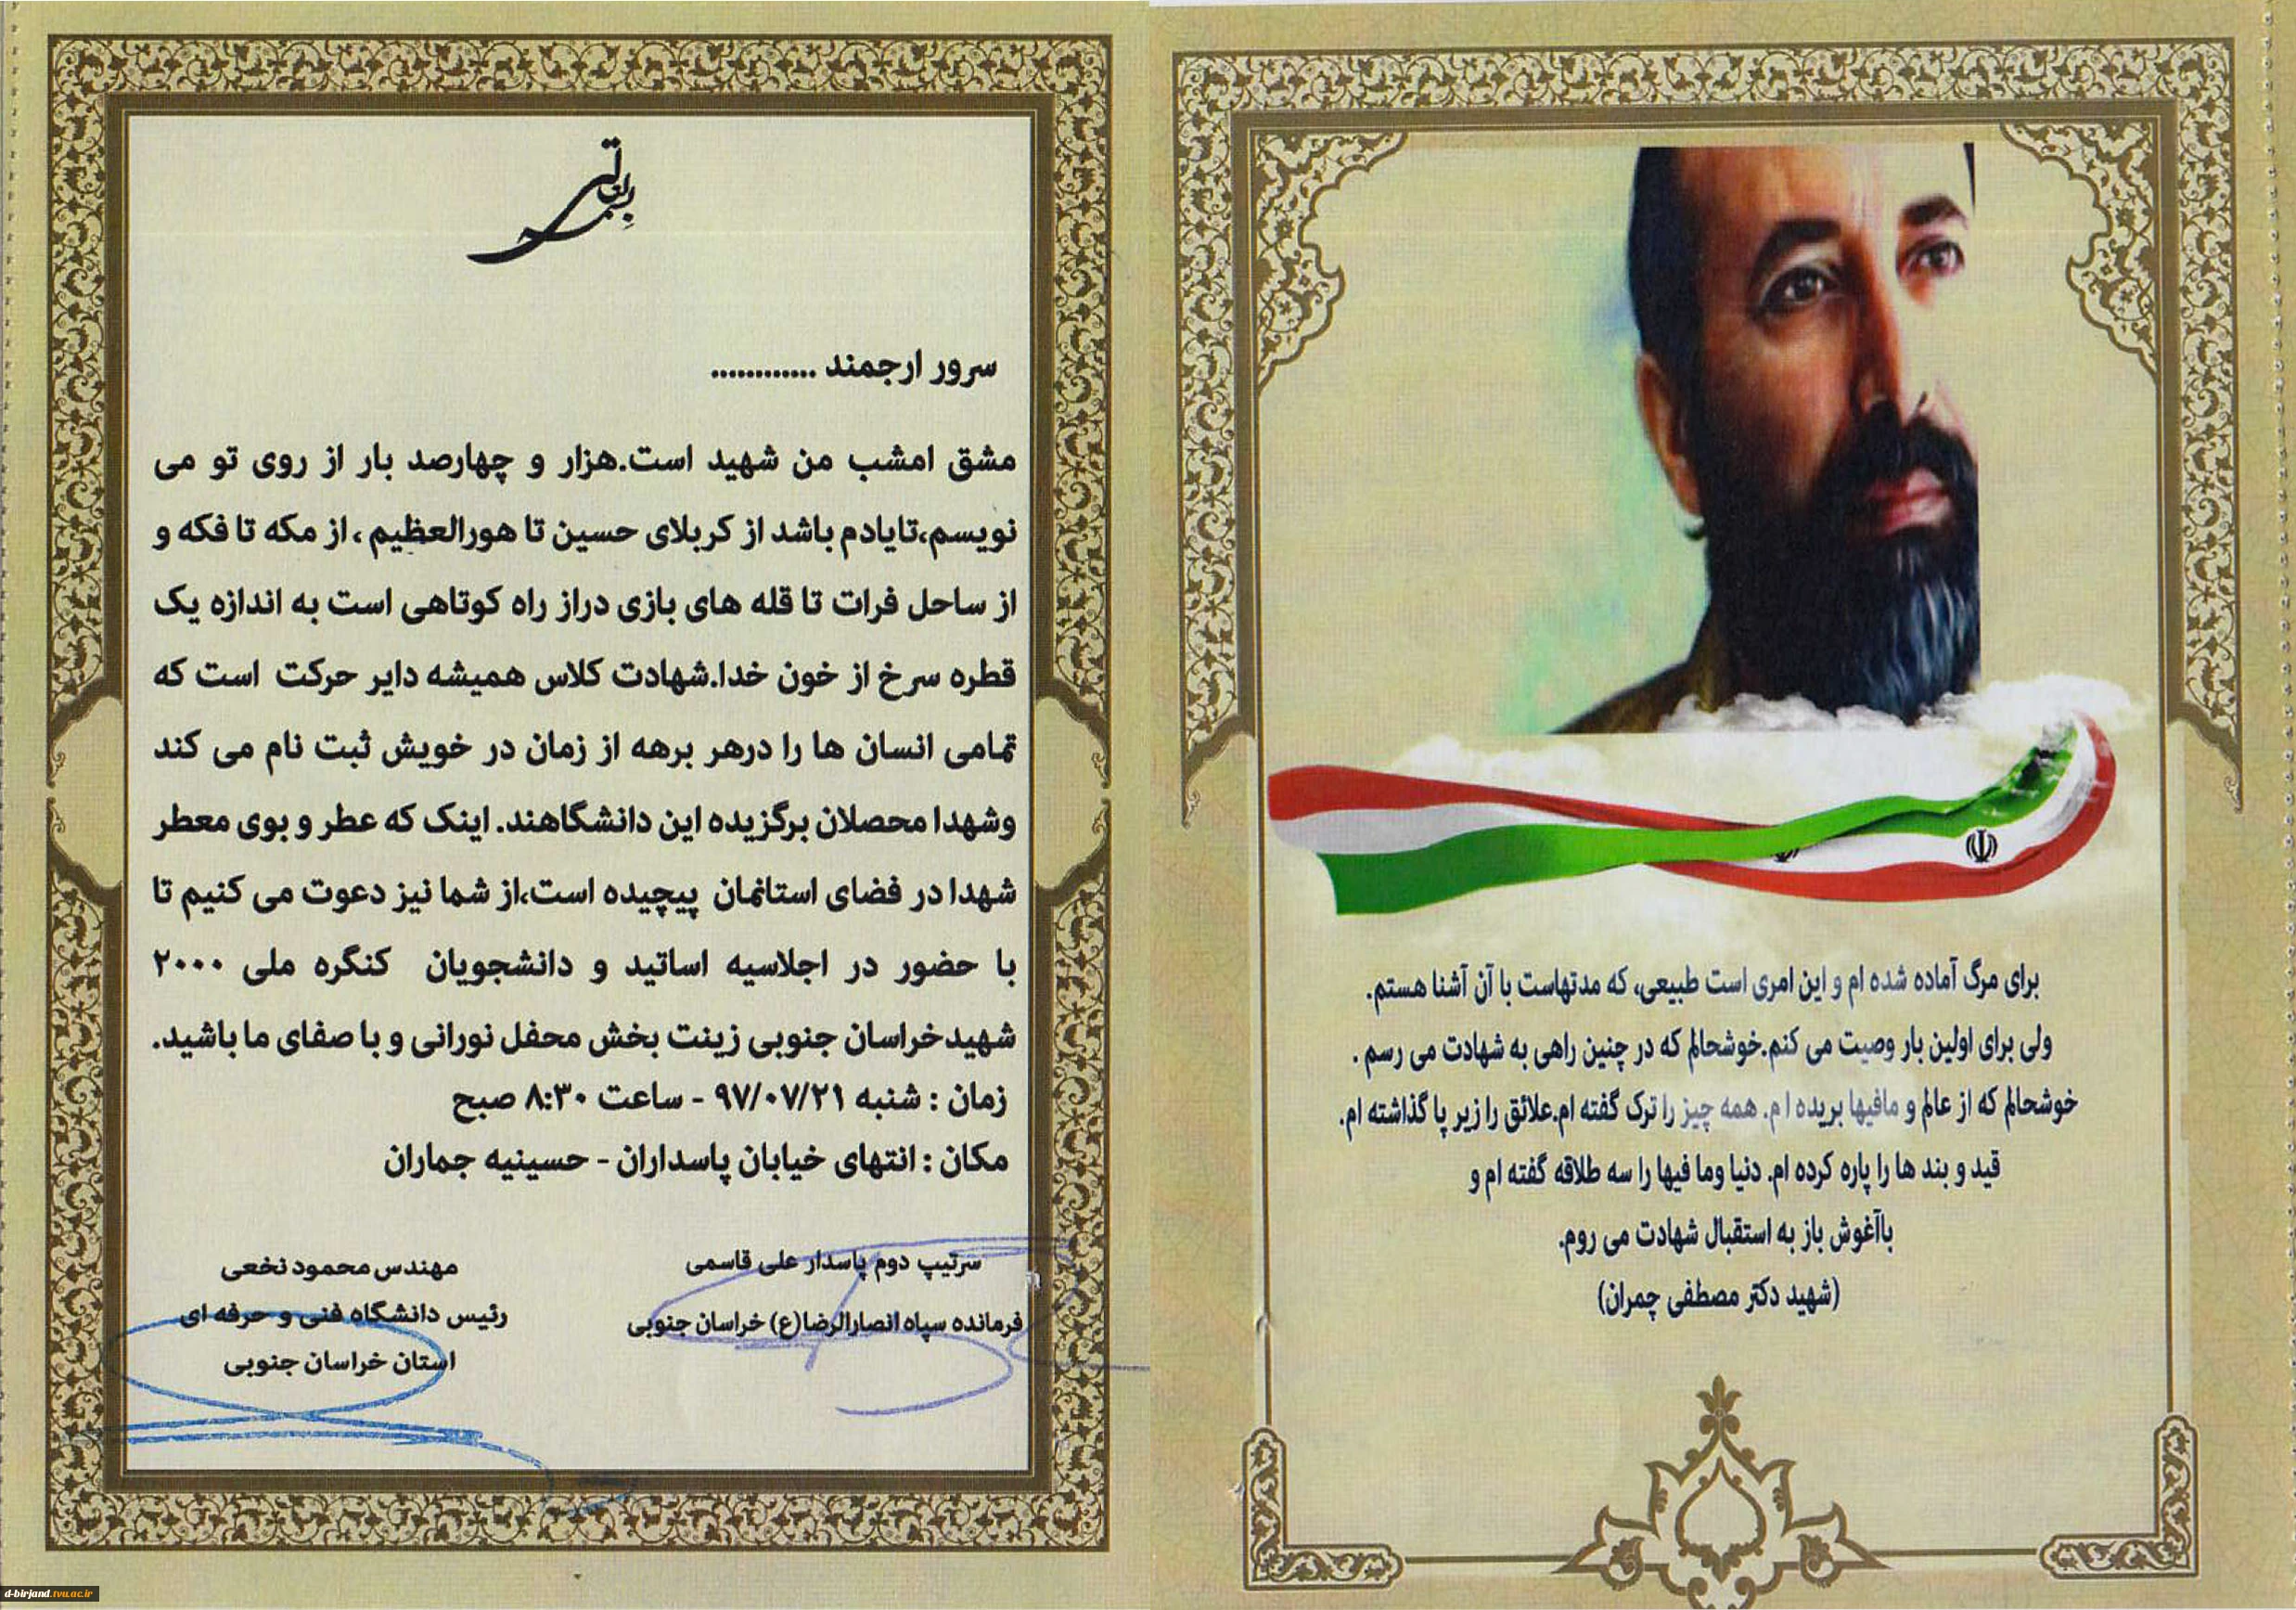 بسمه تعالی
سرور ارجمند ............
مشق امشب من شهید است.هزار و چهارصد بار از روی تو می
نویسم،تایادم باشد از کربلای حسین تا هورالعظیم ، از مکه تا فکه و
از ساحل فرات تا قله های بازی دراز راه کوتاهی است به اندازه یک
قطره سرخ از خون خدا.شهادت کلاس همیشه دایر حرکت است که
تمامی انسان ها را درهر برهه از زمان در خویش ثبت نام می کند
وشهدا محصلان برگزیده این دانشگاهند. اینک که عطر و بوی معطر
شهدا در فضای استانمان پیچیده است،از شما نیز دعوت می کنیم تا
با حضور در اجلاسیه اساتید و دانشجویان کنگره ملی ۲۰۰۰
شهیدخراسان جنوبی زینت بخش محفل نورانی و با صفای ما باشید.
زمان : شنبه ۹۷/۰۷/۲۱ - ساعت ۸:۳۰ صبح
مکان : انتهای خیابان پاسداران - حسینیه جماران
سرتیپ دوم پاسدار علی قاسمی
فرمانده سپاه انصارالرضا(ع) خراسان جنوبی
مهندس محمود نخعی
رئیس دانشگاه فنی و حرفه ای
استان خراسان جنوبی
برای مرگ آماده شده ام و این امری است طبیعی، که مدتهاست با آن آشنا هستم.
ولی برای اولین بار وصیت می کنم.خوشحالم که در چنین راهی به شهادت می رسم .
خوشحالم که از عالم و مافیها بریده ا م. همه چیز را ترک گفته ام.علائق را زیر پا گذاشته ام.
قید و بند ها را پاره کرده ام. دنیا وما فیها را سه طلاقه گفته ام و
باآغوش باز به استقبال شهادت می روم.
(شهید دکتر مصطفی چمران)
d-birjand.tvu.ac.ir